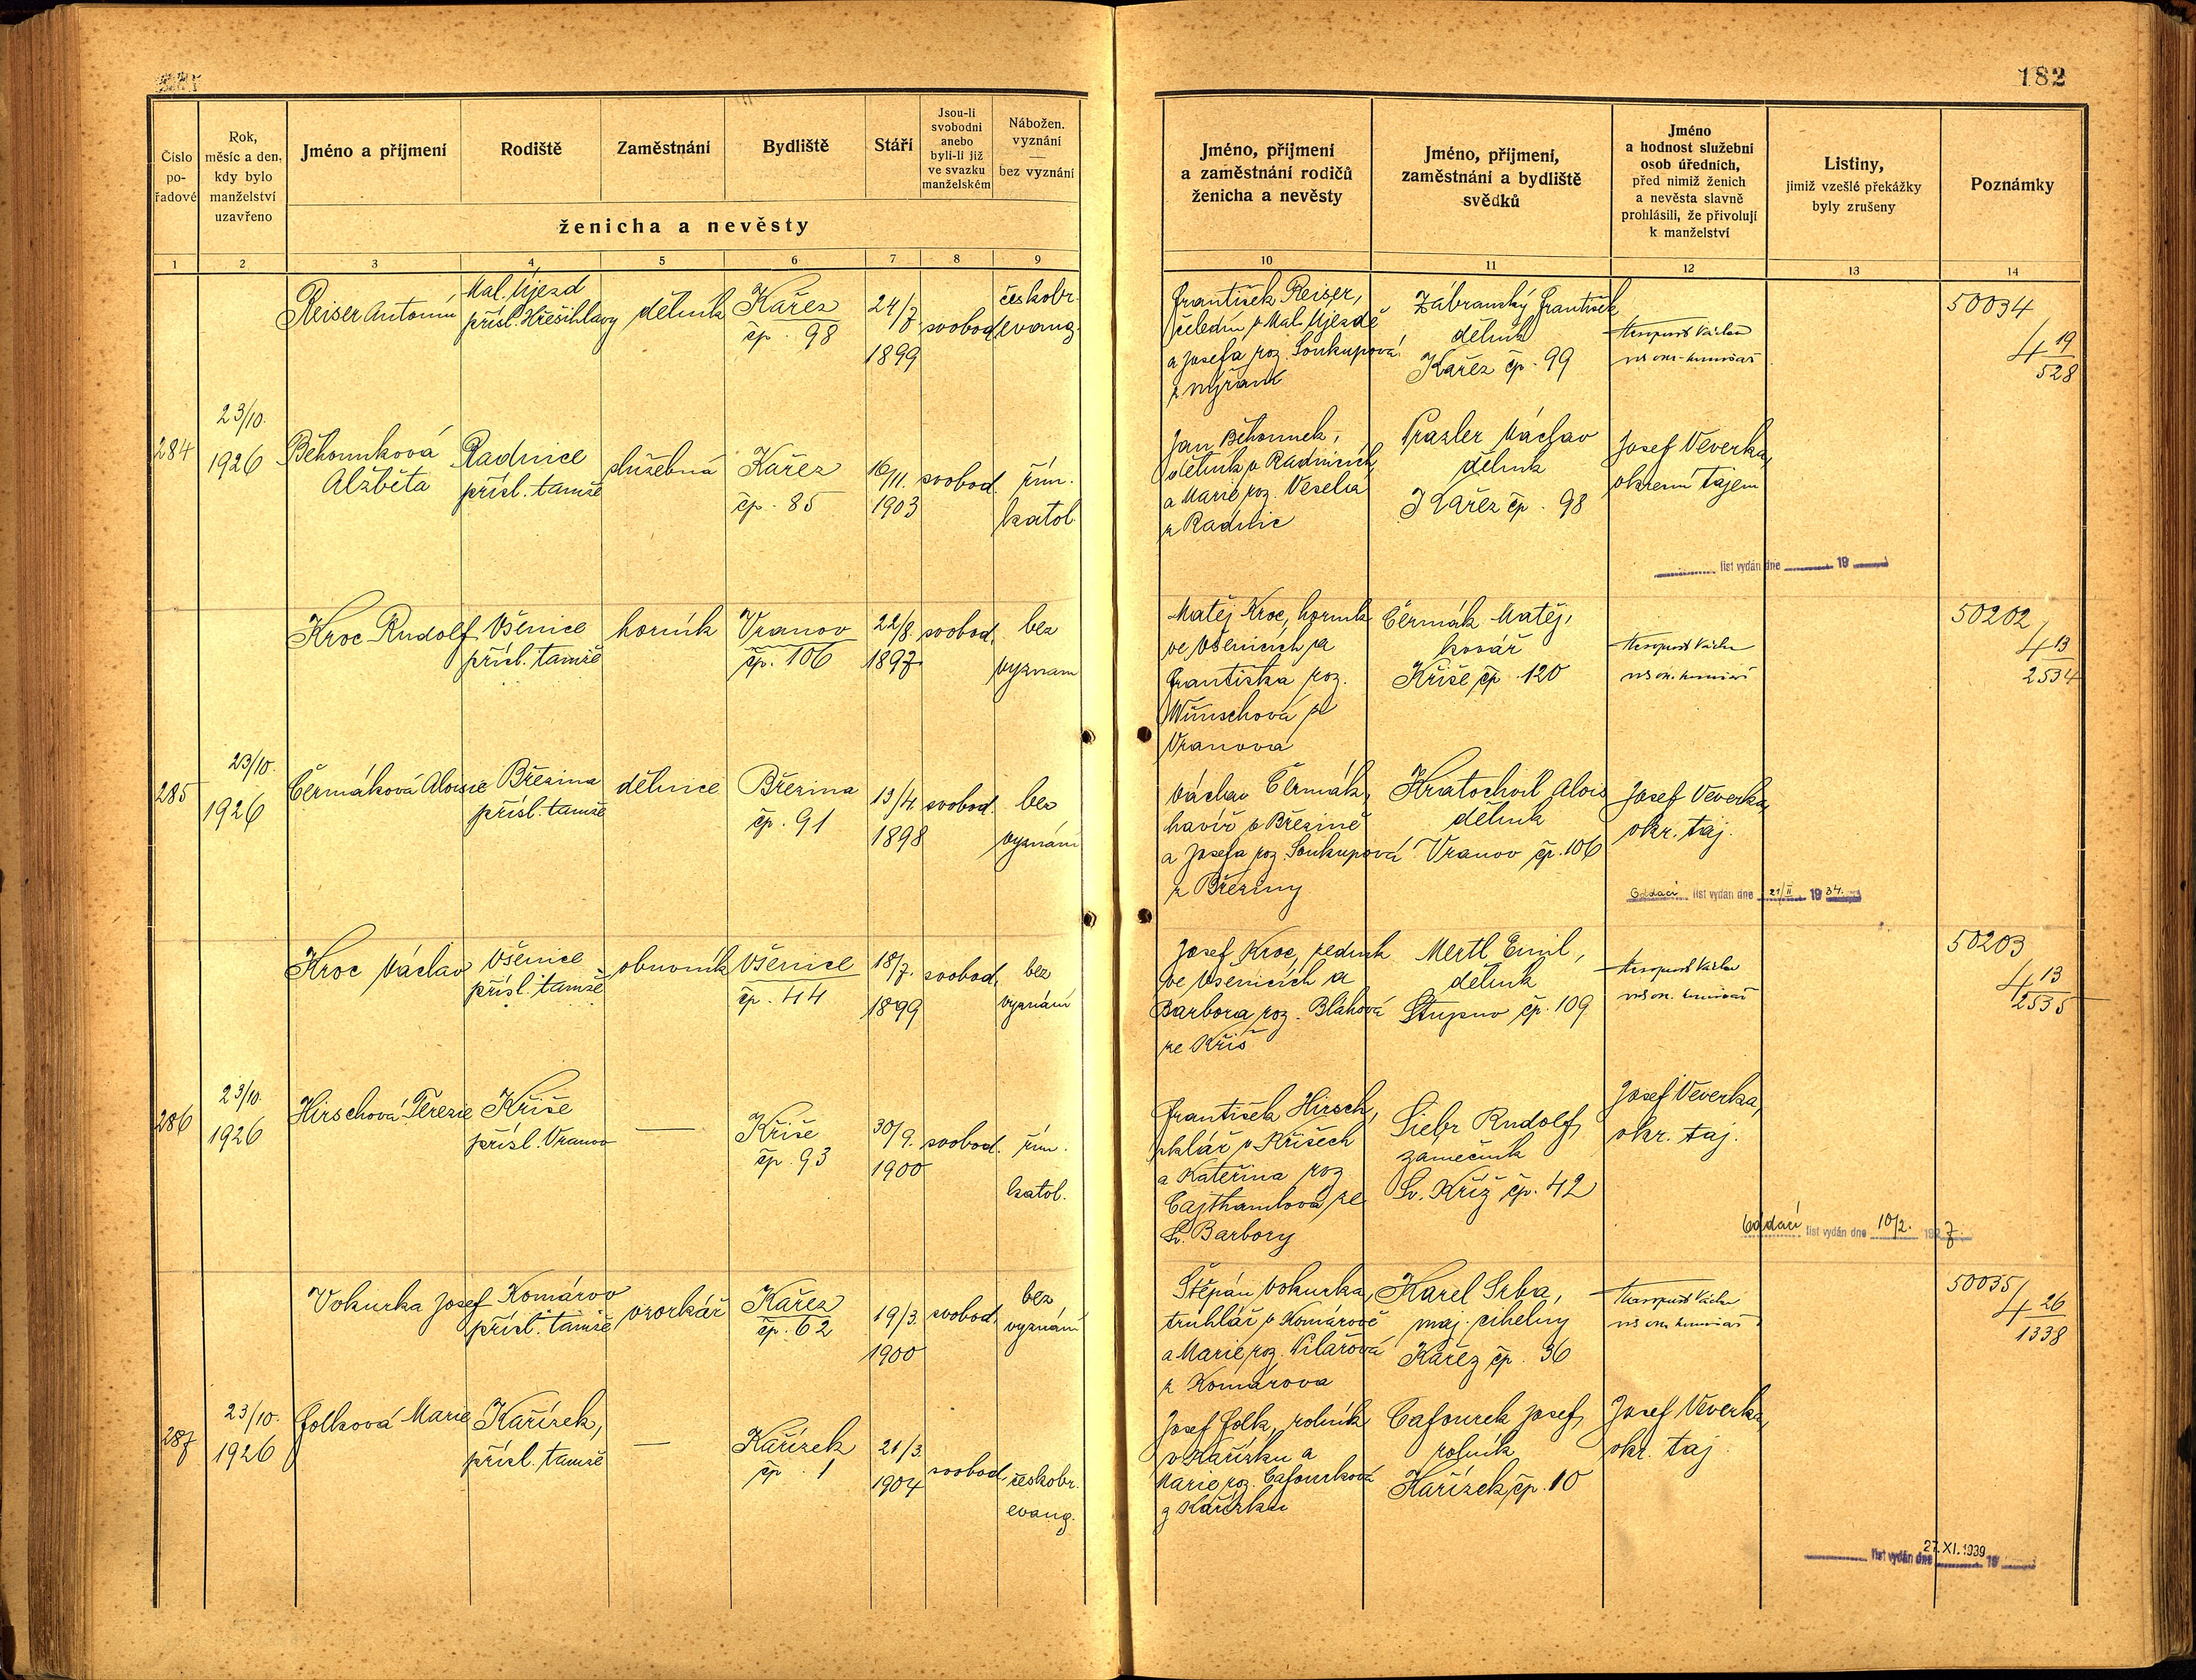 182
Číslo po-řadové
Rok, měsíc a den, kdy bylo manželství uzavřeno
Jméno a příjmení
Rodiště
Zaměstnání
Bydliště
Stáří
Jsou-li svobodni anebo byli-li již ve svazku manželském
Nábožen. vyznání — bez vyznání
ženicha a nevěsty
Jméno, příjmení a zaměstnání rodičů ženicha a nevěsty
Jméno, příjmení, zaměstnání a bydliště svědků
Jméno a hodnost služební osob úředních, před nimiž ženich a nevěsta slavně prohlásili, že přivolují k manželství
Listiny, jimiž vzešlé překážky byly zrušeny
Poznámky
1 2 3 4 5 6 7 8 9 10 11 12 13 14
Reiser Antonín
Mal. Újezd
přísl. Hřešihlavy
dělník
Kařez
čp. 98
24/7
1899
svobod.
českobr.
evang.
František Reiser,
čeledín v Mal. Újezdě
a Josefa roz. Soukupová
Zábranský František
dělník
Kařez čp. 99
50034
4 19
528
284
23/10.
1926
Běhounková
Alžběta
Radnice
přísl. tamže
služebná
Kařez
čp. 85
16/11.
1903
svobod.
řím.
katol.
Jan Běhounek,
dělník v Radnicích
a Marie roz. Veselá
z Radnic
Prazler Václav
dělník
Kařez čp. 98
Josef Veverka,
okresní tajem
list vydán dne 19
Kroc Rudolf
Všenice
přísl. tamže
horník
Vranov
čp. 106
22/8.
1897
svobod.
bez
vyznání
Matěj Kroc, horník
ve Všenicích a
Františka roz.
Wünschová z
Vranova
Čermák Matěj,
kovář
Kříše čp. 120
50202
4 13
2534
285
23/10.
1926
Čermáková Aloisie
Březina
přísl. tamže
dělnice
Březina
čp. 91
13/4
1898
svobod.
bez
vyznání
Václav Čermák,
havíř v Březině
a Josefa roz. Soukupová
z Březiny
Kratochvíl Alois
dělník
Vranov čp. 106
Josef Veverka,
okr. taj.
Oddací list vydán dne 21/II 1934.
Kroc Václav
Všenice
přísl. tamže
obuvník
Všenice
čp. 44
18/7.
1899
svobod.
bez
vyznání
Josef Kroc, zedník
ve Všenicích a
Barbora roz. Bláhová
ze Kříš
Mertl Emil,
dělník
Stupno čp. 109
50203
4 13
2535
286
23/10.
1926
Hirschová Terezie
Kříše
přísl. Vranov
—
Kříše
čp. 93
30/9.
1900
svobod.
řím.
katol.
František Hirsch,
sklář v Kříších
a Kateřina roz
Cajthamlová ze
Sv. Barbory
Siebr Rudolf,
zámečník
Sv. Kříž čp. 42
Josef Veverka,
okr. taj.
Oddací list vydán dne 10/2. 1927.
Vokurka Josef
Komárov
přísl. tamže
vzorkář
Kařez
čp. 62
19/3.
1900
svobod.
bez
vyznání
Štěpán Vokurka,
truhlář v Komárově
a Marie roz. Pilařová
z Komárova
Karel Srba,
maj. cihelny
Kařez čp. 36
50035
4 26
1338
287
23/10.
1926
Folková Marie
Kařízek,
přísl. tamže
—
Kařízek
čp. 1
21/3.
1904
svobod.
českobr.
evang.
Josef Folk, rolník
v Kařízku a
Marie roz. Cafourková
z Kařízku
Cafourek Josef,
rolník
Kařízek čp. 10
Josef Veverka,
okr. taj.
list vydán dne 27. XI. 1939 19